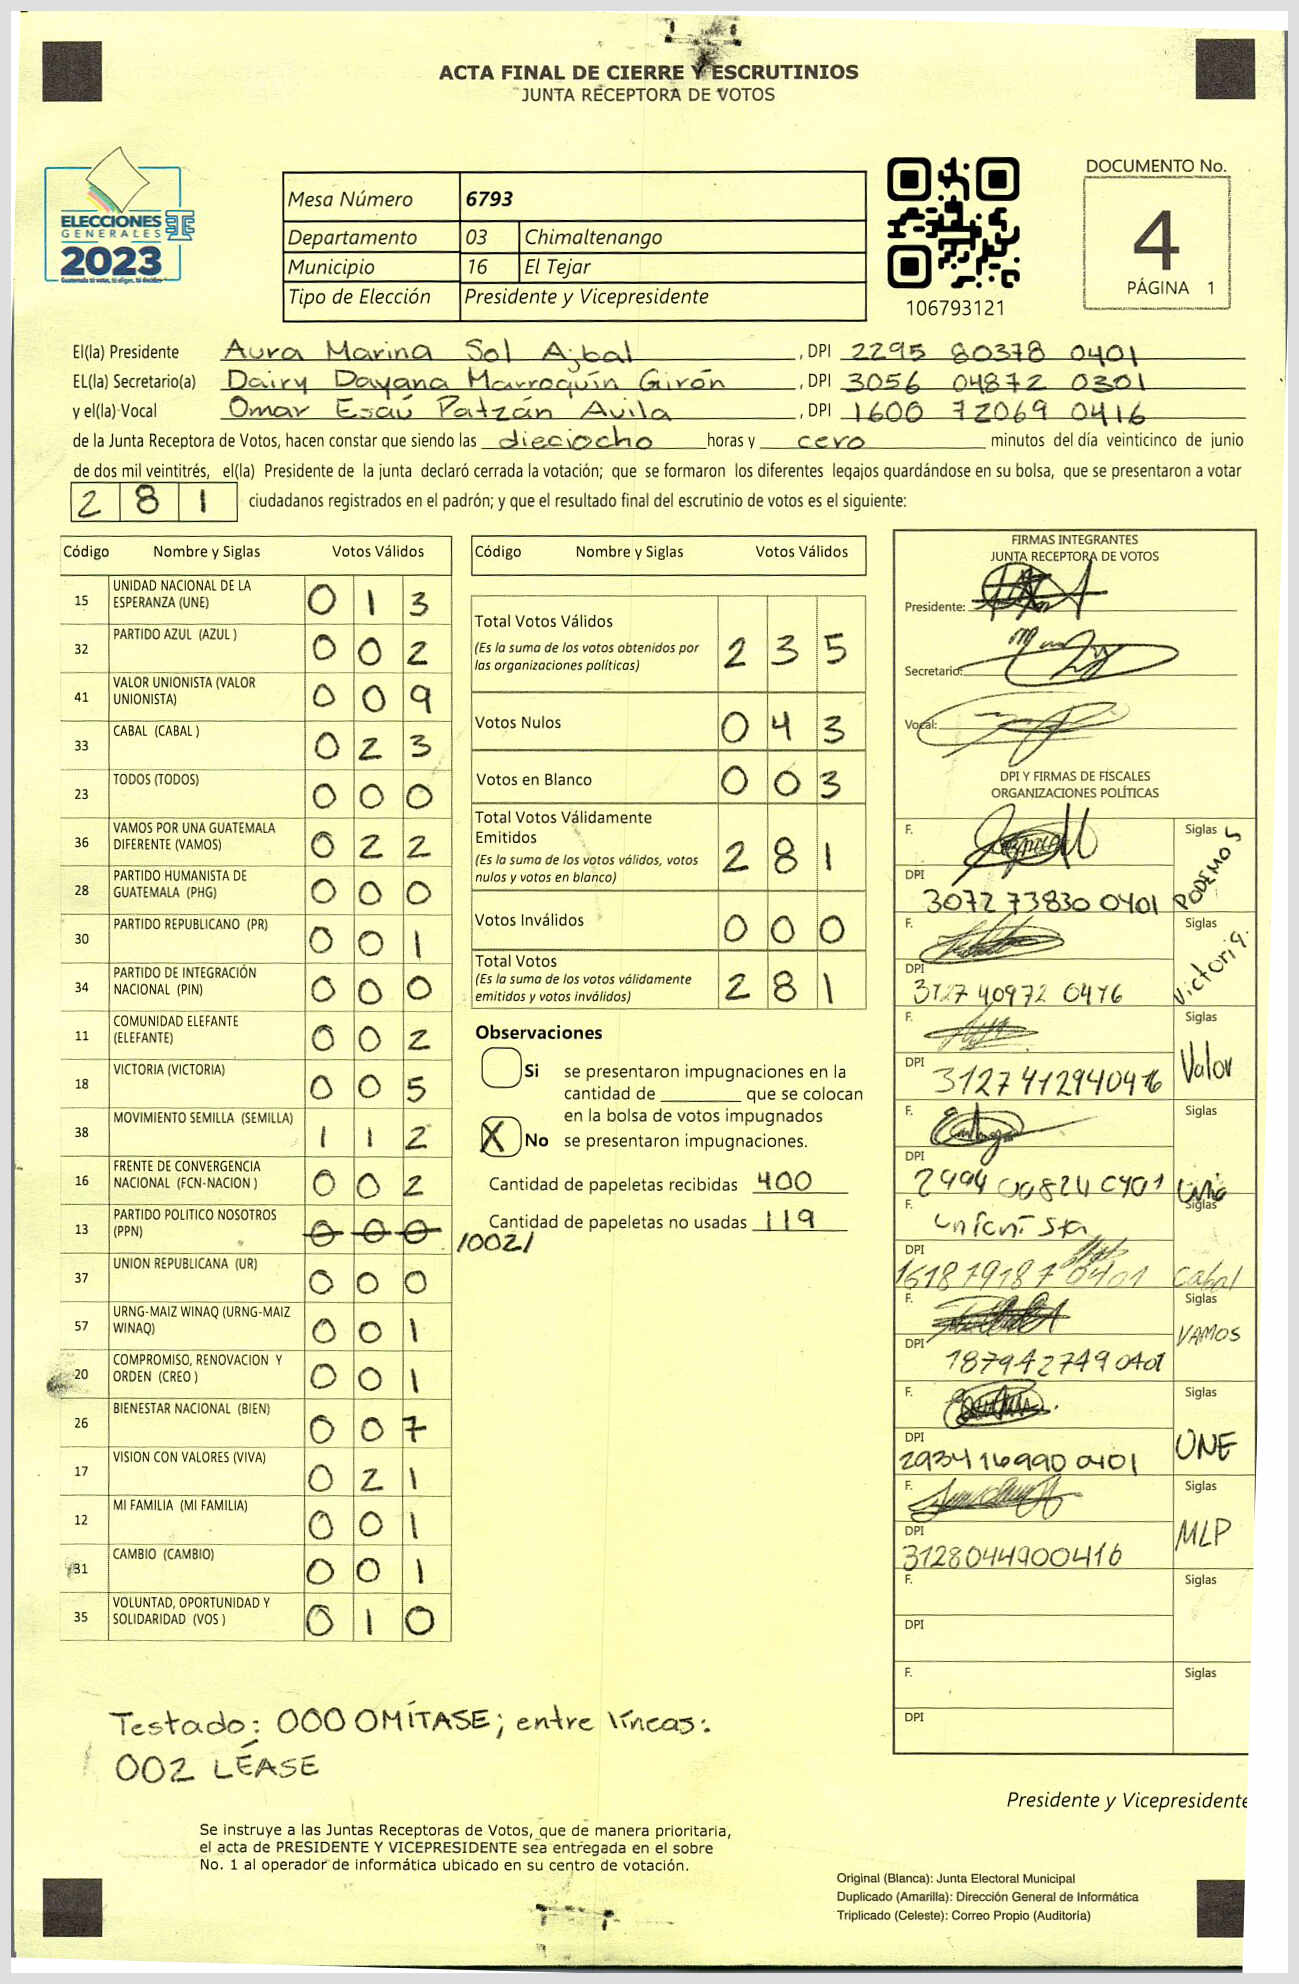 ACTA FINAL DE CIERRE Y ESCRUTINIOS
JUNTA RECEPTORA DE VOTOS
ELECCIONES
GENERALES
2023
Mesa Número 6793
Departamento 03 Chimaltenango
Municipio 16 El Tejar
Tipo de Elección Presidente y Vicepresidente
106793121
DOCUMENTO No.
4
PÁGINA 1
El(la) Presidente Aura Marina Sol Ajbal, DPI 2295 80378 0401
EL(la) Secretario(a) Dairy Dayana Marroquín Girón, DPI 3056 04872 0301
y el(la) Vocal Omar Esaú Patzán Avila, DPI 1600 72069 0416
de la Junta Receptora de Votos, hacen constar que siendo las dieciocho horas y cero minutos del día veinticinco de junio
de dos mil veintitrés, el(la) Presidente de la junta declaró cerrada la votación; que se formaron los diferentes legajos guardándose en su bolsa, que se presentaron a votar
281 ciudadanos registrados en el padrón; y que el resultado final del escrutinio de votos es el siguiente:
Código Nombre y Siglas Votos Válidos
15 UNIDAD NACIONAL DE LA ESPERANZA (UNE) 013
32 PARTIDO AZUL (AZUL ) 002
41 VALOR UNIONISTA (VALOR UNIONISTA) 009
33 CABAL (CABAL ) 023
23 TODOS (TODOS) 000
36 VAMOS POR UNA GUATEMALA DIFERENTE (VAMOS) 022
28 PARTIDO HUMANISTA DE GUATEMALA (PHG) 000
30 PARTIDO REPUBLICANO (PR) 001
34 PARTIDO DE INTEGRACIÓN NACIONAL (PIN) 000
11 COMUNIDAD ELEFANTE (ELEFANTE) 002
18 VICTORIA (VICTORIA) 005
38 MOVIMIENTO SEMILLA (SEMILLA) 112
16 FRENTE DE CONVERGENCIA NACIONAL (FCN-NACION ) 002
13 PARTIDO POLITICO NOSOTROS (PPN) 000 /002/
37 UNION REPUBLICANA (UR) 000
57 URNG-MAIZ WINAQ (URNG-MAIZ WINAQ) 001
20 COMPROMISO, RENOVACION Y ORDEN (CREO ) 001
26 BIENESTAR NACIONAL (BIEN) 007
17 VISION CON VALORES (VIVA) 021
12 MI FAMILIA (MI FAMILIA) 001
31 CAMBIO (CAMBIO) 001
35 VOLUNTAD, OPORTUNIDAD Y SOLIDARIDAD (VOS ) 010
Código Nombre y Siglas Votos Válidos
Total Votos Válidos
(Es la suma de los votos obtenidos por
las organizaciones políticas) 235
Votos Nulos 043
Votos en Blanco 003
Total Votos Válidamente
Emitidos
(Es la suma de los votos válidos, votos
nulos y votos en blanco) 281
Votos Inválidos 000
Total Votos
(Es la suma de los votos válidamente
emitidos y votos inválidos) 281
Observaciones
Si se presentaron impugnaciones en la
cantidad de ________ que se colocan
en la bolsa de votos impugnados
X No se presentaron impugnaciones.
Cantidad de papeletas recibidas 400
Cantidad de papeletas no usadas 119
FIRMAS INTEGRANTES
JUNTA RECEPTORA DE VOTOS
Presidente:
Secretario:
Vocal:
DPI Y FIRMAS DE FÍSCALES
ORGANIZACIONES POLÍTICAS
F. Siglas PODEMOS
DPI 3072 73830 0401
F. Siglas Victoria.
DPI 3127 40972 0416
F. Siglas Valor
DPI 3127412940416
F. Siglas
DPI 2994 00824 0401
F. unionista Siglas Cabal
DPI 16187918 7 0401
F. Siglas VAMOS
DPI 187942749 0401
F. Siglas UNE
DPI 2934 16990 0401
F. Siglas MLP
DPI 3128044900416
F. Siglas
DPI
F. Siglas
DPI
Testado: 000 OMÍTASE; entre líneas:
002 LÉASE
Presidente y Vicepresidente
Se instruye a las Juntas Receptoras de Votos, que de manera prioritaria,
el acta de PRESIDENTE Y VICEPRESIDENTE sea entregada en el sobre
No. 1 al operador de informática ubicado en su centro de votación.
Original (Blanca): Junta Electoral Municipal
Duplicado (Amarilla): Dirección General de Informática
Triplicado (Celeste): Correo Propio (Auditoría)